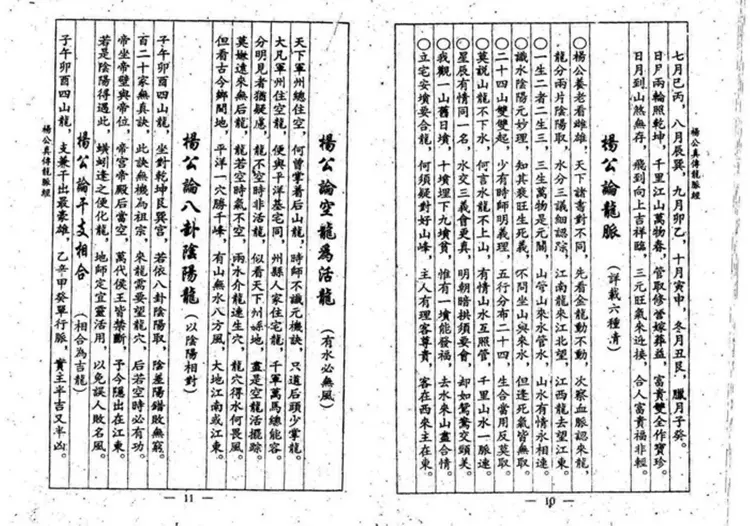 楊公真傳龍脈經
七月巳丙，八月辰巽，九月卯乙，十月寅申，冬月丑艮，臘月子癸。
日月兩輪照乾坤，千里江山萬物春，管取修營嫁葬益，富貴雙全作寶珍。
日月到山煞無存，飛到向上吉祥臨，三元旺氣來迎接，合人富貴福非輕。
楊公論龍脈（詳載六種清）
○楊公養老看雌雄，天下諸書對不同，先看金龍動不動，次察血脈認來龍，
龍分兩片陰陽取，水分三議細認踪，江南龍來江北望，江西龍去望江東。
○一生二者二生三，三生萬物是元關，山管山來水管水，山水有情永相連。
○識水陰陽元妙理，知其衰旺生死義，不問坐山與來水，但逢死氣皆無取。
○二十四山雙雙起，少有時師明義理，五行分布二十四，生合當用反莫取。
○莫説山龍不下水，何言水龍不上山，有情山水互照管，千里山水一脈連。
○星辰有情同一名，水交三義會更真，明朝暗拱須要會，却如鴛鴦交頸美。
○我觀一山舊日墳，十墳埋下九墳貧，惟有一墳能發福，去水來山盡合情。
○立宅安墳要合龍，何須疑對好山峰，主人有理客尊貴，客在西來主在東。
— 10 —
楊公論空龍為活龍（有水必無風）
天下軍州總住空，何曾掌着后山龍，時師不識元機訣，只道后頭少掌龍。
大凡軍州住空龍，便與平洋基宅同，州縣人家住宅龍，千軍萬馬總能容。
分明見者猶疑慮，龍不空時非活龍，似看天下州縣地，盡是空龍活擺踪。
莫嫌遠來無后龍，龍若空時氣不空，兩水介龍連生穴，龍穴得水何畏風。
但看古今鄉間地，平洋一穴勝千峰，有山無水八方風，大地江南或江東。
楊公論八卦陰陽龍（以陰陽相對）
子午卯酉四山龍，坐對乾坤艮巽宮，若依八卦陰陽取，陰差陽錯敗無窮。
百二十家無真訣，此訣無機為祖宗，來龍需要望龍穴，后若空時必有功。
帝坐帝壁與帝位，帝宮帝殿后當空，萬代侯王皆禁斷，予今隱出在江東。
若是陰陽得遇此，蟥蚓逢之便化龍，地師定宜靈活用，以免誤人敗名風。
楊公論干支相合（相合為吉龍）
子午卯酉四山龍，支兼干出最豪雄，乙辛甲癸單行脈，實主半吉又半凶。
楊公真傳龍脈經
— 11 —